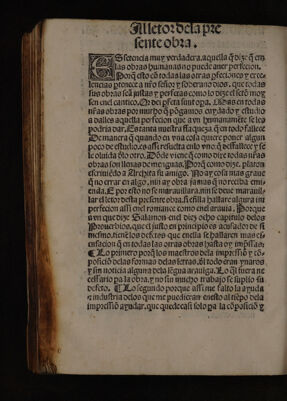 Al letor dela pre
sente obra.
ES setencia muy verdadera. aquella q̃ dize q̃ en
las obras humanas no puede auer perfecion.
Porq̃ esto cõ todas las otras pfeciones y exce
lencias ptenece a nr̃o señor y soberano dios. que todas
sus obras seã justas y perfetas como lo dize el señ moy
sen enel cantico.
nr̃as obras por mucho q̃ põgamos cuydado y estudio
a dalles aquella perfecion que a vn humanamẽte se les
podria dar. Es tanta nuestra flaqueza q̃ en todo fallece
De manera q̃ quando en vna cosa quiere poner algun
poco de estudio. es assi resuelta enlo vno. q̃ desfallece y se
le oluida õlo otro. Dõde viene q̃ como dize todas nr̃as
obras son llenas de menguas. Porq̃ como dize. platon
escriuiẽdo a Archita su amigo. No ay cosa mas graue
q̃ no errar en algo. nin ay obra jamas q̃ no reciba eme
enda. E por esto no se marauillara. nin se deue marauil
lar el letor desta presente obra. si enlla hallare alguna im
perfecion assi enel romance como enel arauia. Porque
a vn que dize Salamon enel diez ocho capitulo delos
Prouerbios. que el justo en principio es acusador de si
mesmo. tiene los dotes que enella se hallaren mas es
cusacion q̃ en todas las otras obras hasta oy impssas.
¶ Lo primero porq̃ los maestros dela impressiõ y cõ
posiciõ delas formas delas letras. del todo eran ynaros
y sin noticia alguna dela lẽgua arauiga. Lo q̃l fuera ne
cessario pa la obra. y no sin mucho trabajo se suplio su
defeto. ¶ Lo segundo porque assi me falto la ayuda
z industria delos que me pudieran eneste al tiẽpo dela
impressiõ ayudar. que quede casi solo pa la cõposiciõ y